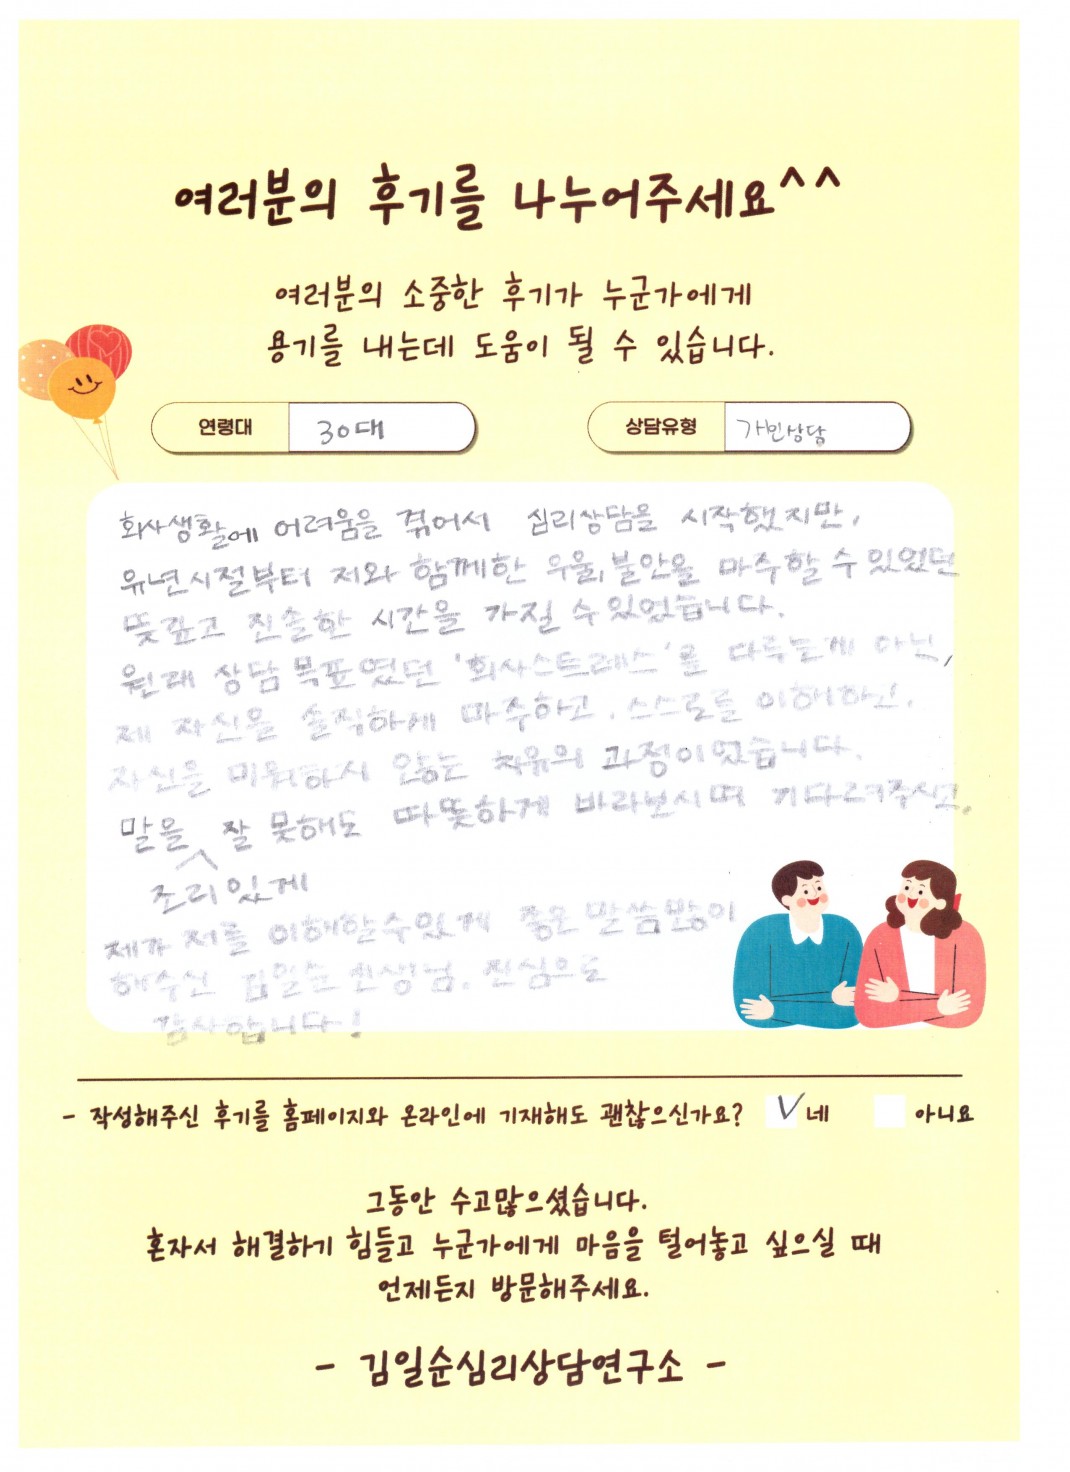 여러분의 후기를 나누어주세요^^
여러분의 소중한 후기가 누군가에게
용기를 내는데 도움이 될 수 있습니다.
연령대 30대 상담유형 개인상담
회사생활에 어려움을 겪어서 심리상담을 시작했지만,
유년시절부터 저와 함께한 우울, 불안을 마주할 수 있었던
뜻깊고 진솔한 시간을 가질 수 있었습니다.
원래 상담 목표였던 '회사스트레스'를 다루는게 아닌,
제 자신을 솔직하게 마주하고, 스스로를 이해하고,
자신을 미워하지 않는 치유의 과정이었습니다.
말을 잘 못해도 따뜻하게 바라보시며 기다려주시고,
조리있게
제가 저를 이해할 수 있게 좋은 말씀 많이
해주신 김일순 선생님, 진심으로
감사합니다!
- 작성해주신 후기를 홈페이지와 온라인에 기재해도 괜찮으신가요? V 네 아니요
그동안 수고많으셨습니다.
혼자서 해결하기 힘들고 누군가에게 마음을 털어놓고 싶으실 때
언제든지 방문해주세요.
- 김일순심리상담연구소 -